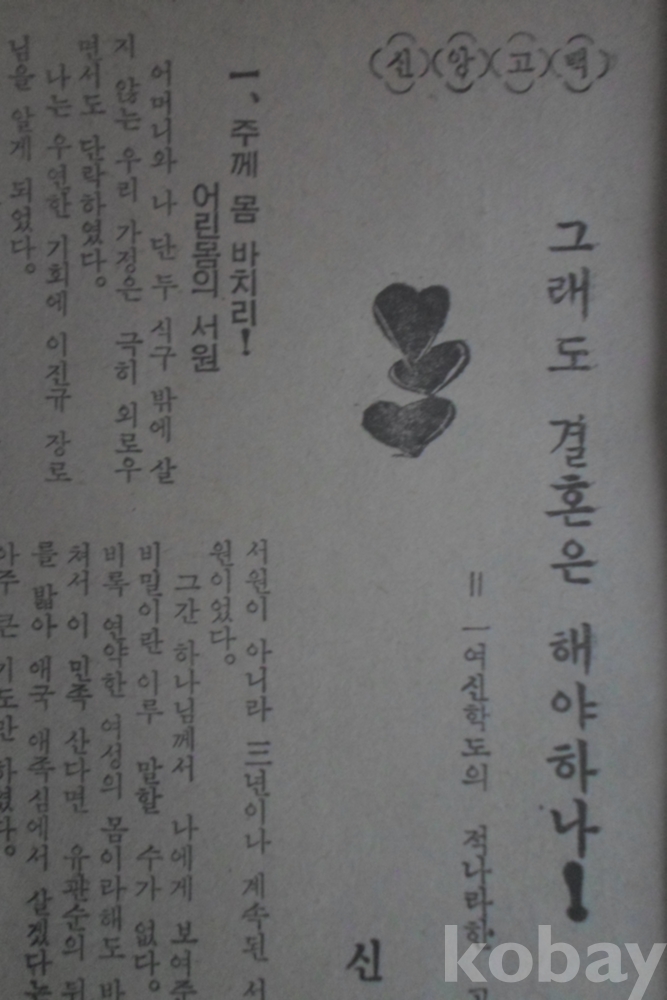 신앙고백
그래도 결혼은 해야하나!
= 一여신학도의 적나라한
신
一、주께 몸 바치리!
어린몸의 서원
어머니와 나 단 두 식구 밖에 살
지 않는 우리 가정은 극히 외로우
면서도 단락하였다。
나는 우연한 기회에 이진규 장로
님을 알게 되었다。
서원이 아니라 三년이나 계속된 서
원이었다。
그간 하나님께서 나에게 보여주
비밀이란 이루 말할 수가 없다。
비록 연약한 여성의 몸이라해도 바
쳐서 이 민족 산다면 유관순의 뒤
를 밟아 애국 애족심에서 살겠다는
아주 큰 기도만 하였다。
kobay